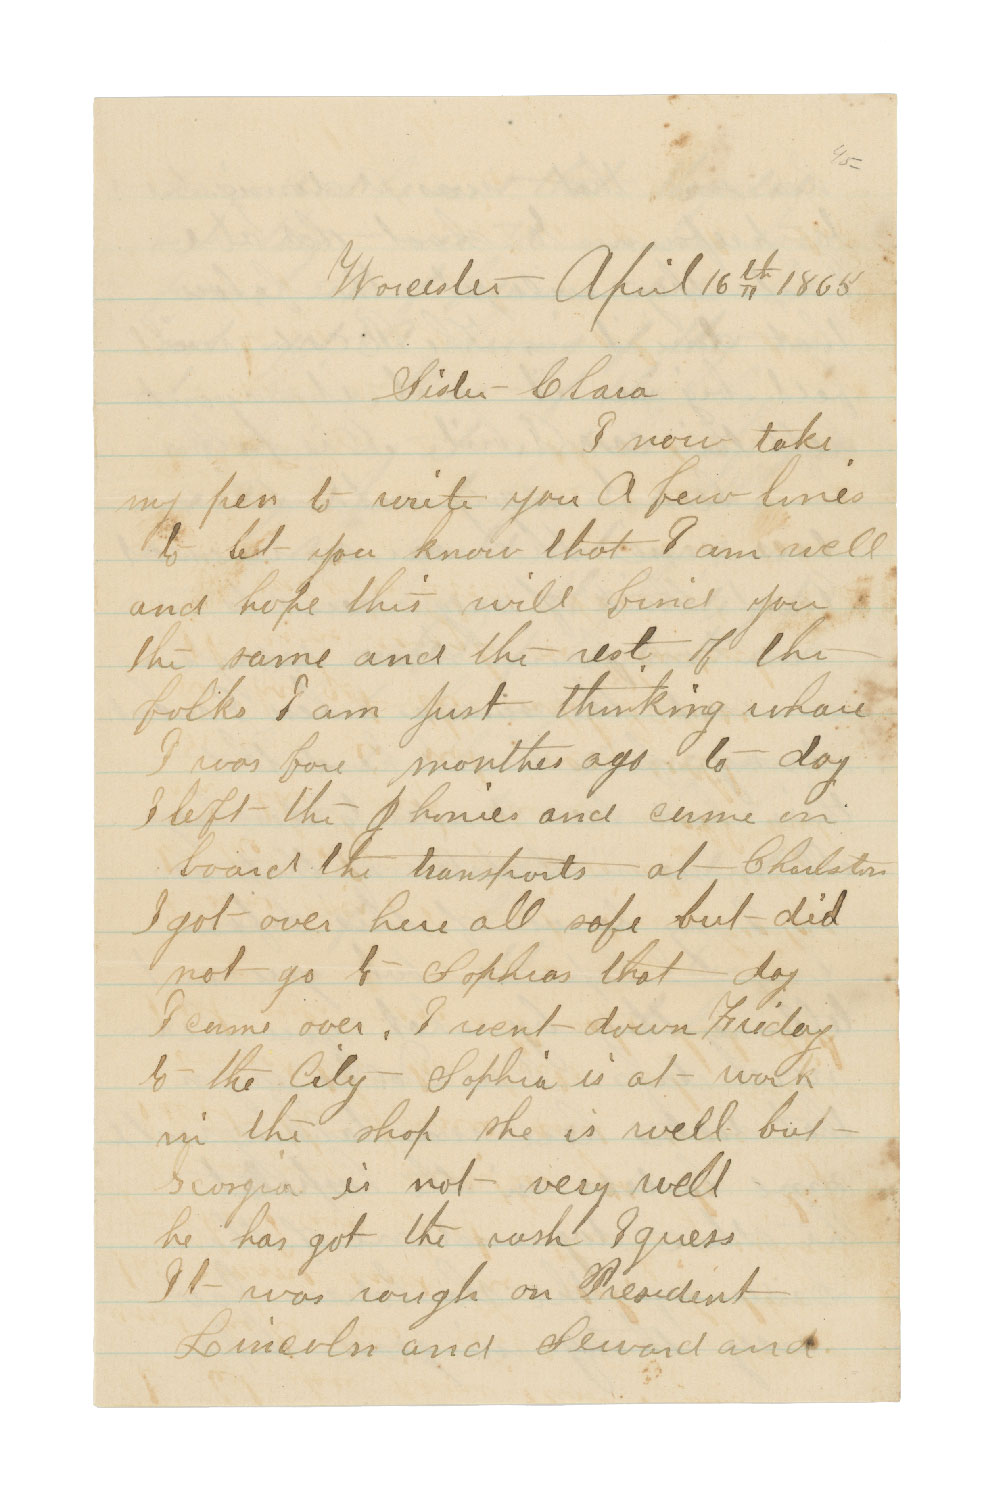 45
Worcester April 16th 1865
Sister Clara
I now take
my pen to write you A few lines
to let you know that I am well
and hope this will find you
the same and the rest of the
folks I am just thinking whare
I was fore monthes ago to day
I left the Jhonies and came on
board the transports at Charlston
I got over here all safe but did
not go to Sophias that day
I came over, I went down Friday
to the City Sophia is at work
in the shop she is well but
Gorgia is not very well
he has got the rash I guess
It was rough on President
Lincoln and Seward and